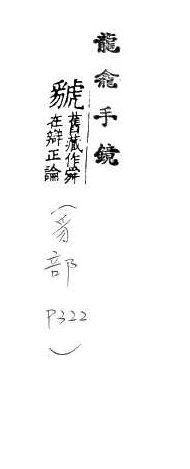 龍龕手鏡
舊藏作舜
在辯正論
(豸部
P322
)